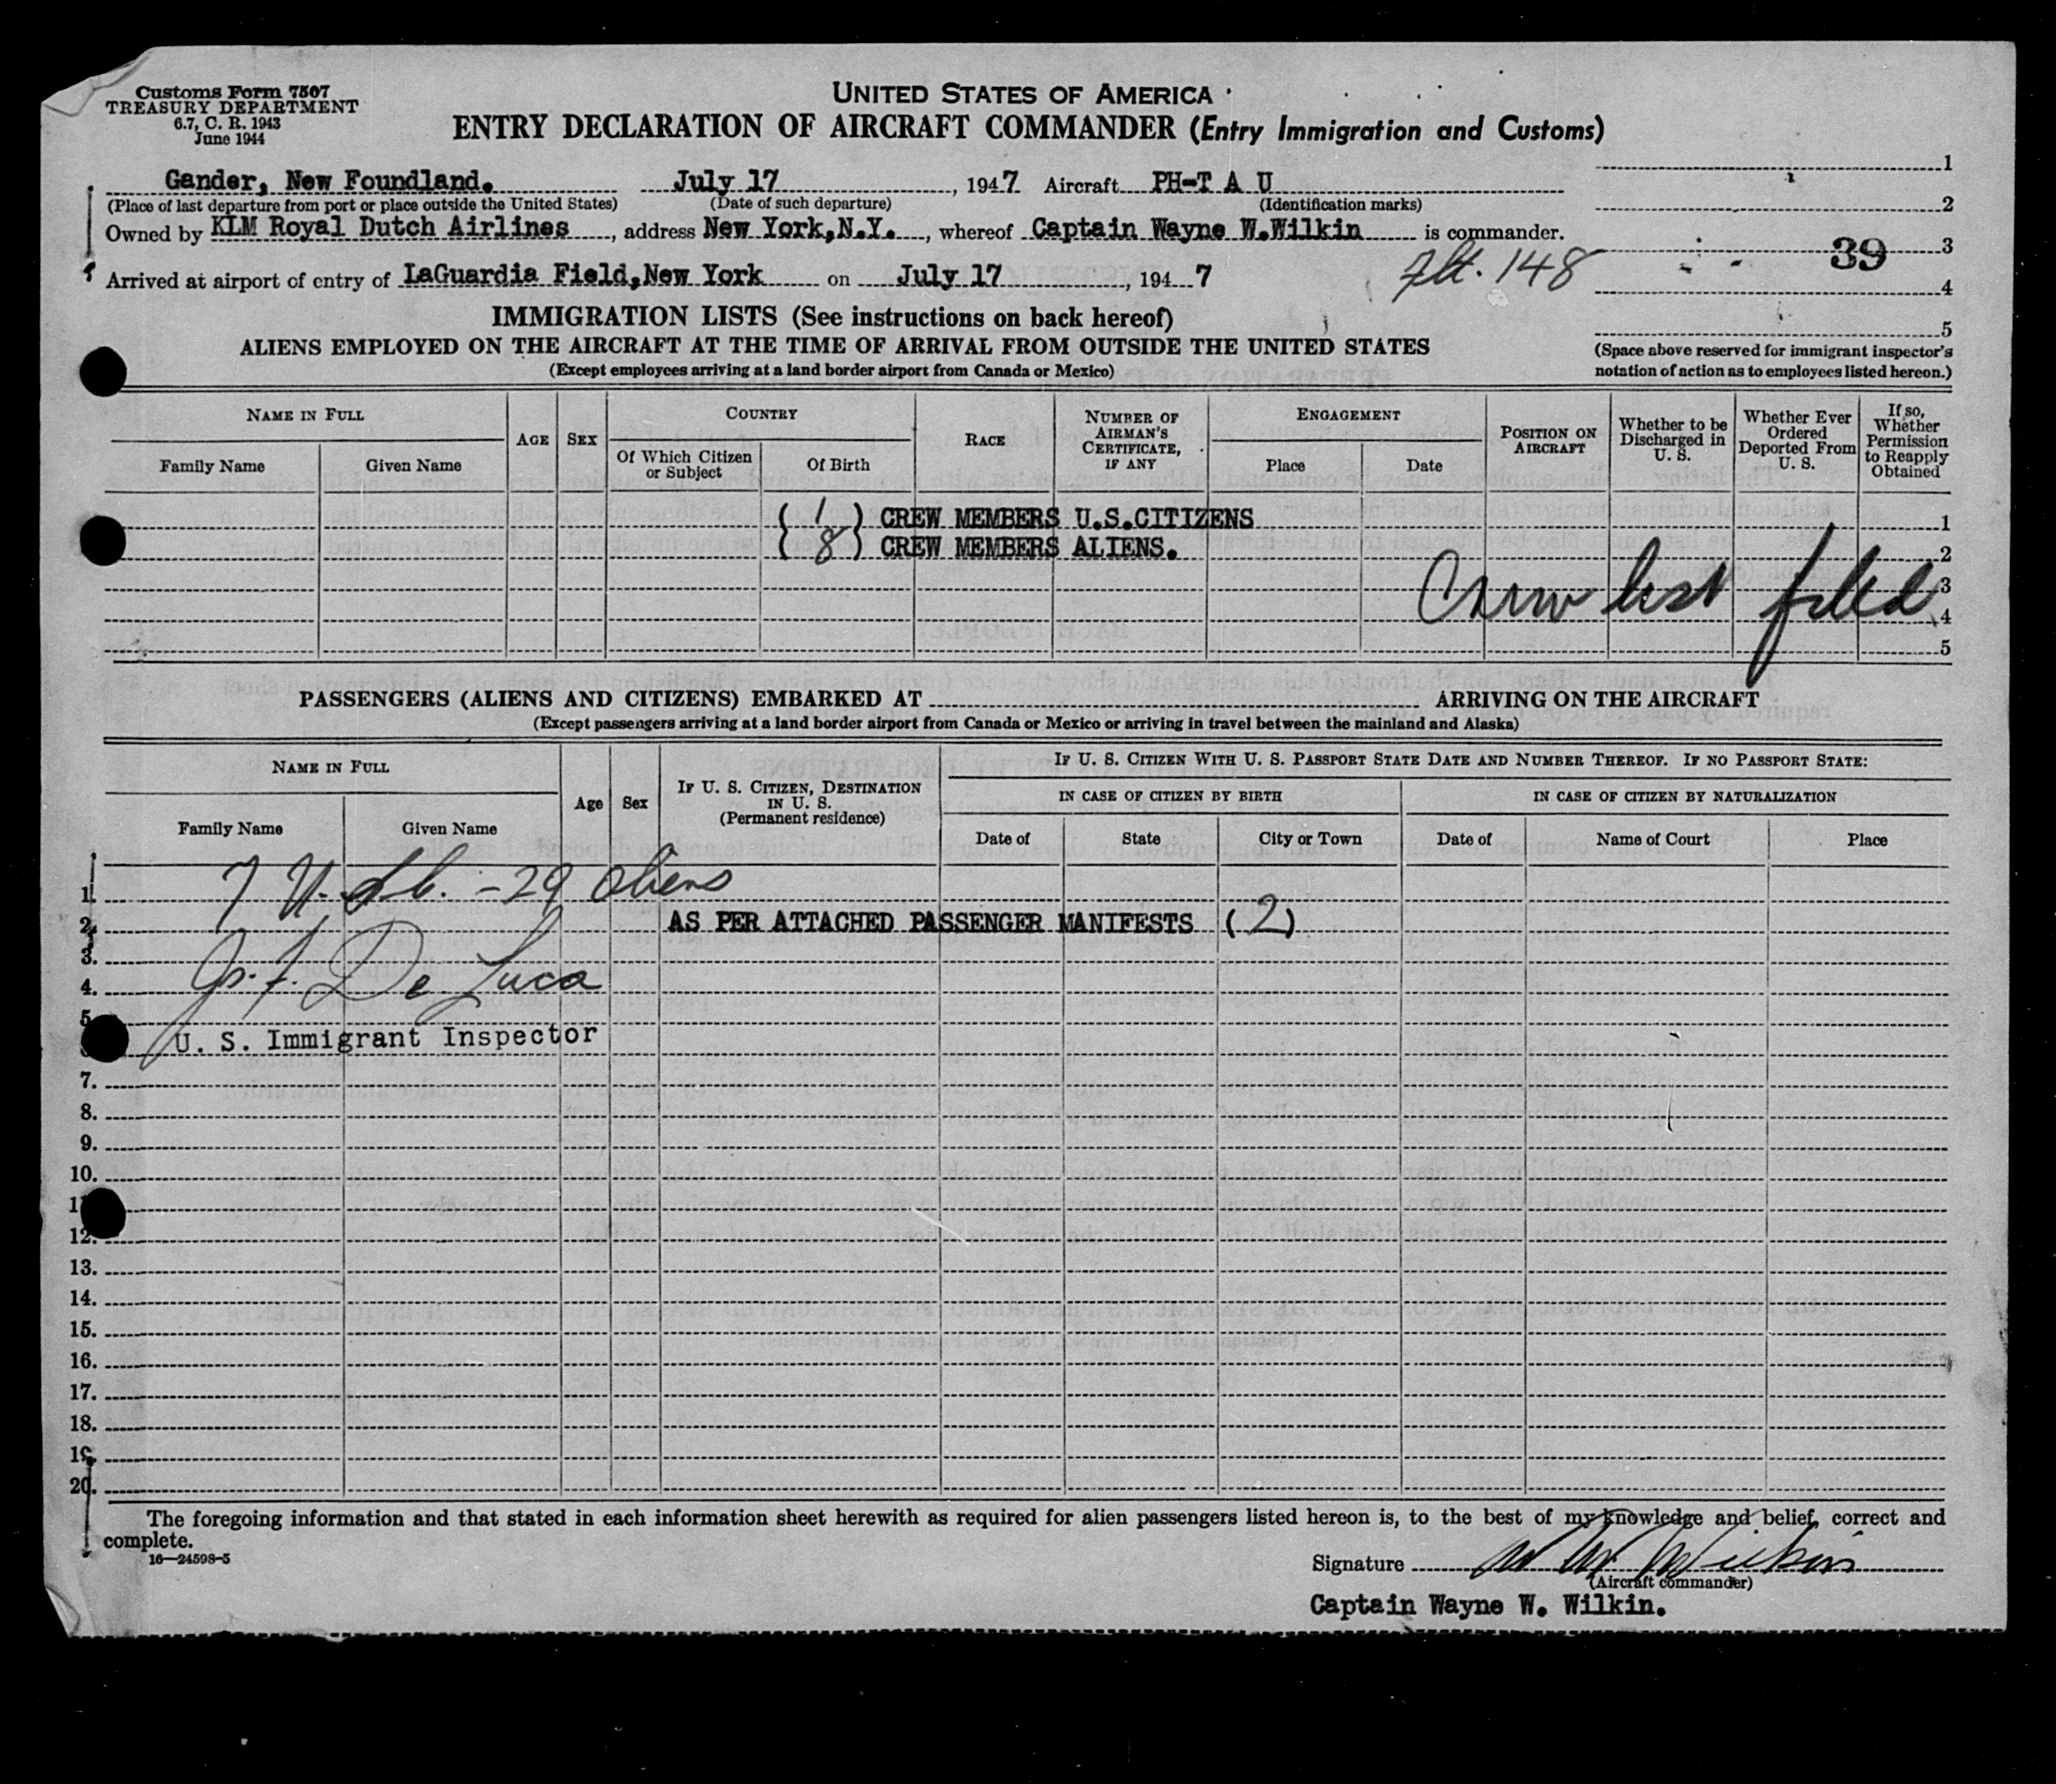 Customs Form 7507
TREASURY DEPARTMENT
6.7, C. R. 1943
June 1944
UNITED STATES OF AMERICA
ENTRY DECLARATION OF AIRCRAFT COMMANDER (Entry Immigration and Customs)
Gander, New Foundland. July 17, 1947 Aircraft PH-T A U
(Place of last departure from port or place outside the United States) (Date of such departure) (Identification marks)
Owned by KLM Royal Dutch Airlines, address New York, N.Y., whereof Captain Wayne W.Wilkin is commander.
Arrived at airport of entry of LaGuardia Field, New York on July 17, 1947
Flt. 148
1
2
39 3
4
5
(Space above reserved for immigrant inspector's
notation of action as to employees listed hereon.)
IMMIGRATION LISTS (See instructions on back hereof)
ALIENS EMPLOYED ON THE AIRCRAFT AT THE TIME OF ARRIVAL FROM OUTSIDE THE UNITED STATES
(Except employees arriving at a land border airport from Canada or Mexico)
NAME IN FULL
Family Name Given Name
AGE
SEX
COUNTRY
Of Which Citizen or Subject Of Birth
RACE
NUMBER OF AIRMAN'S CERTIFICATE, IF ANY
ENGAGEMENT
Place Date
POSITION ON AIRCRAFT
Whether to be Discharged in U. S.
Whether Ever Ordered Deported From U. S.
If so, Whether Permission to Reapply Obtained
(1) CREW MEMBERS U.S.CITIZENS 1
(8) CREW MEMBERS ALIENS. 2
Crew list filed 3
4
5
PASSENGERS (ALIENS AND CITIZENS) EMBARKED AT ARRIVING ON THE AIRCRAFT
(Except passengers arriving at a land border airport from Canada or Mexico or arriving in travel between the mainland and Alaska)
NAME IN FULL
Family Name Given Name
Age
Sex
IF U. S. CITIZEN, DESTINATION IN U. S.
(Permanent residence)
IF U. S. CITIZEN WITH U. S. PASSPORT STATE DATE AND NUMBER THEREOF. IF NO PASSPORT STATE:
IN CASE OF CITIZEN BY BIRTH IN CASE OF CITIZEN BY NATURALIZATION
Date of State City or Town Date of Name of Court Place
1. 7 - 29 aliens
2. AS PER ATTACHED PASSENGER MANIFESTS (2)
3.
4. De Luca
5.
U. S. Immigrant Inspector
7.
8.
9.
10.
11.
12.
13.
14.
15.
16.
17.
18.
19.
20.
The foregoing information and that stated in each information sheet herewith as required for alien passengers listed hereon is, to the best of my knowledge and belief, correct and
complete.
16—24598-5
Signature W W Wilkin
(Aircraft commander)
Captain Wayne W. Wilkin.